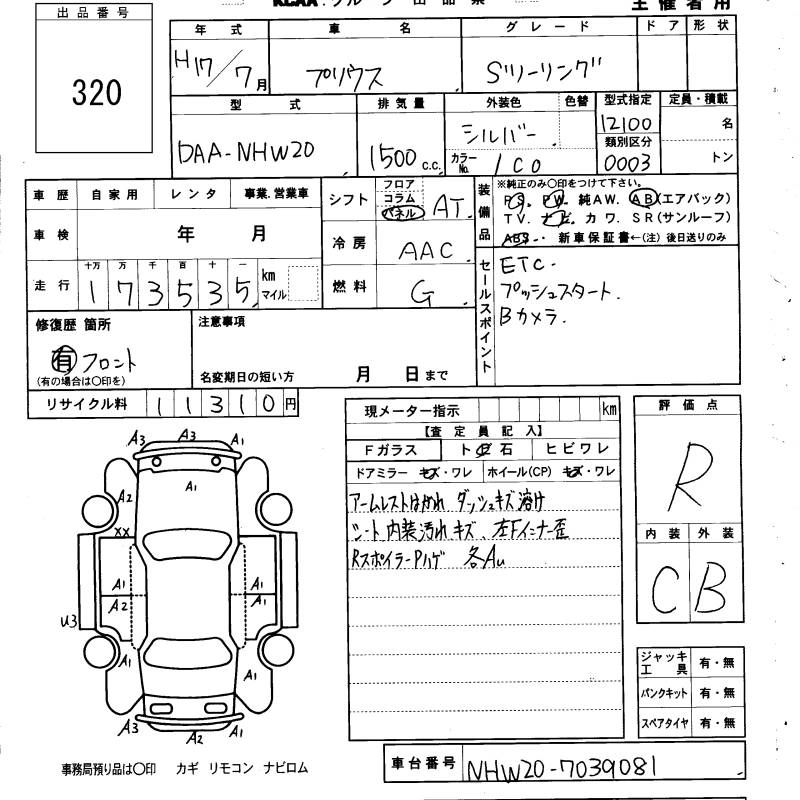 KCAA
主催者用
出品番号
320
年式
車名
グレード
ドア
形状
H17/7月
プリウス
Sツーリング
型式
排気量
外装色
色替
型式指定
定員・積載
DAA-NHW20
1500c.c.
シルバー
12100
名
カラーNo.
1C0
類別区分
0003
トン
車歴
自家用
レンタ
事業.営業車
シフト
フロア
コラム
パネル
AT
装備品
※純正のみ○印をつけて下さい。
PS. PW. 純AW. AB(エアバック)
TV. ナビ. カワ. SR(サンルーフ)
ABS. 新車保証書←(注) 後日送りのみ
車検
年 月
冷房
AAC
走行
十万 万 千 百 十 一
1 7 3 5 3 5
km
マイル
燃料
G
セールスポイント
ETC.
プッシュスタート.
Bカメラ.
修復歴 箇所
有 フロント
(有の場合は○印を)
注意事項
名変期日の短い方 月 日まで
リサイクル料
11310円
現メーター指示
km
【査定員記入】
Fガラス
トビ石
ヒビワレ
ドアミラー キズ・ワレ
ホイール(CP) キズ・ワレ
アームレストはがれ ダッシュキズ溶け
シート内装汚れキズ、左Fインナー歪
RスポイラーPハゲ 各Au
評価点
R
内装
外装
C
B
A3 A3 A1
A1
A2
XX
A1 A1
A2 A1
U3
A1 A1
A3 A2 A3
ジャッキ工具 有・無
パンクキット 有・無
スペアタイヤ 有・無
事務局預り品は○印 カギ リモコン ナビロム
車台番号
NHW20-7039081